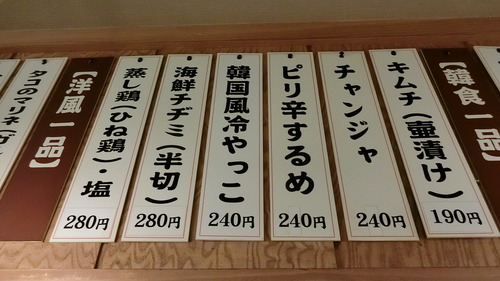 【韓食一品】
キムチ(壺漬け)
190円
チャンジャ
240円
ピリ辛するめ
240円
韓国風冷やっこ
240円
海鮮チヂミ(半切)
280円
蒸し鶏(ひね鶏)・塩
280円
【洋風一品】
タコのマリネ